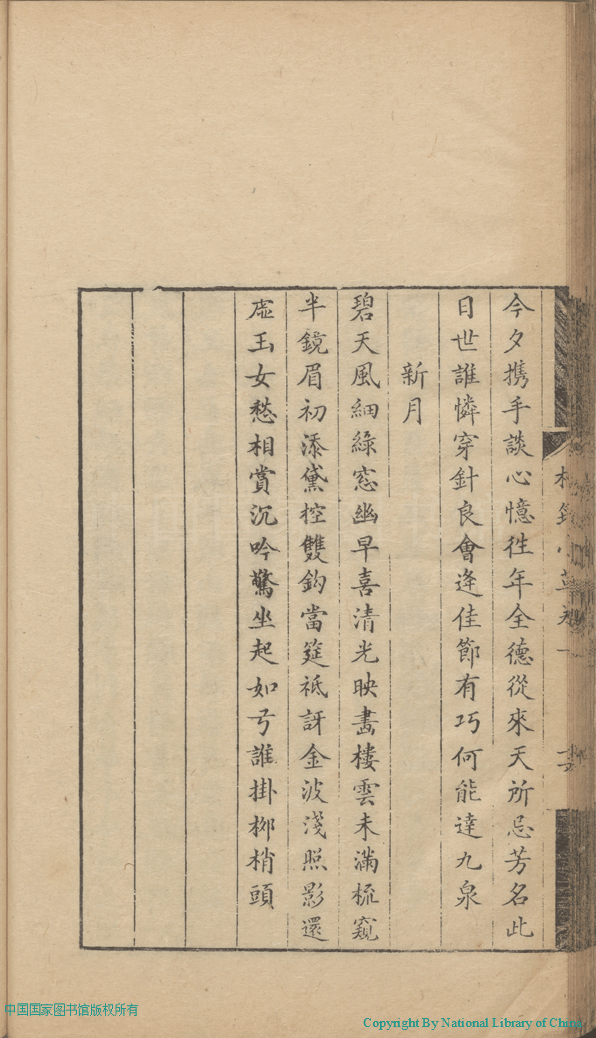 今夕携手談心憶徃年全德從來天所忌芳名此
日世誰憐穿針良會逢佳節有巧何能達九泉
新月
碧天風細綠窓幽早喜清光映畵樓雲未滿梳窺
半鏡眉初添黛控雙鈎當筵祗訝金波淺照影還
虛玉女愁相賞沉吟驚坐起如弓誰掛桞梢頭
中国国家图书馆版权所有
Copyright By National Library of China